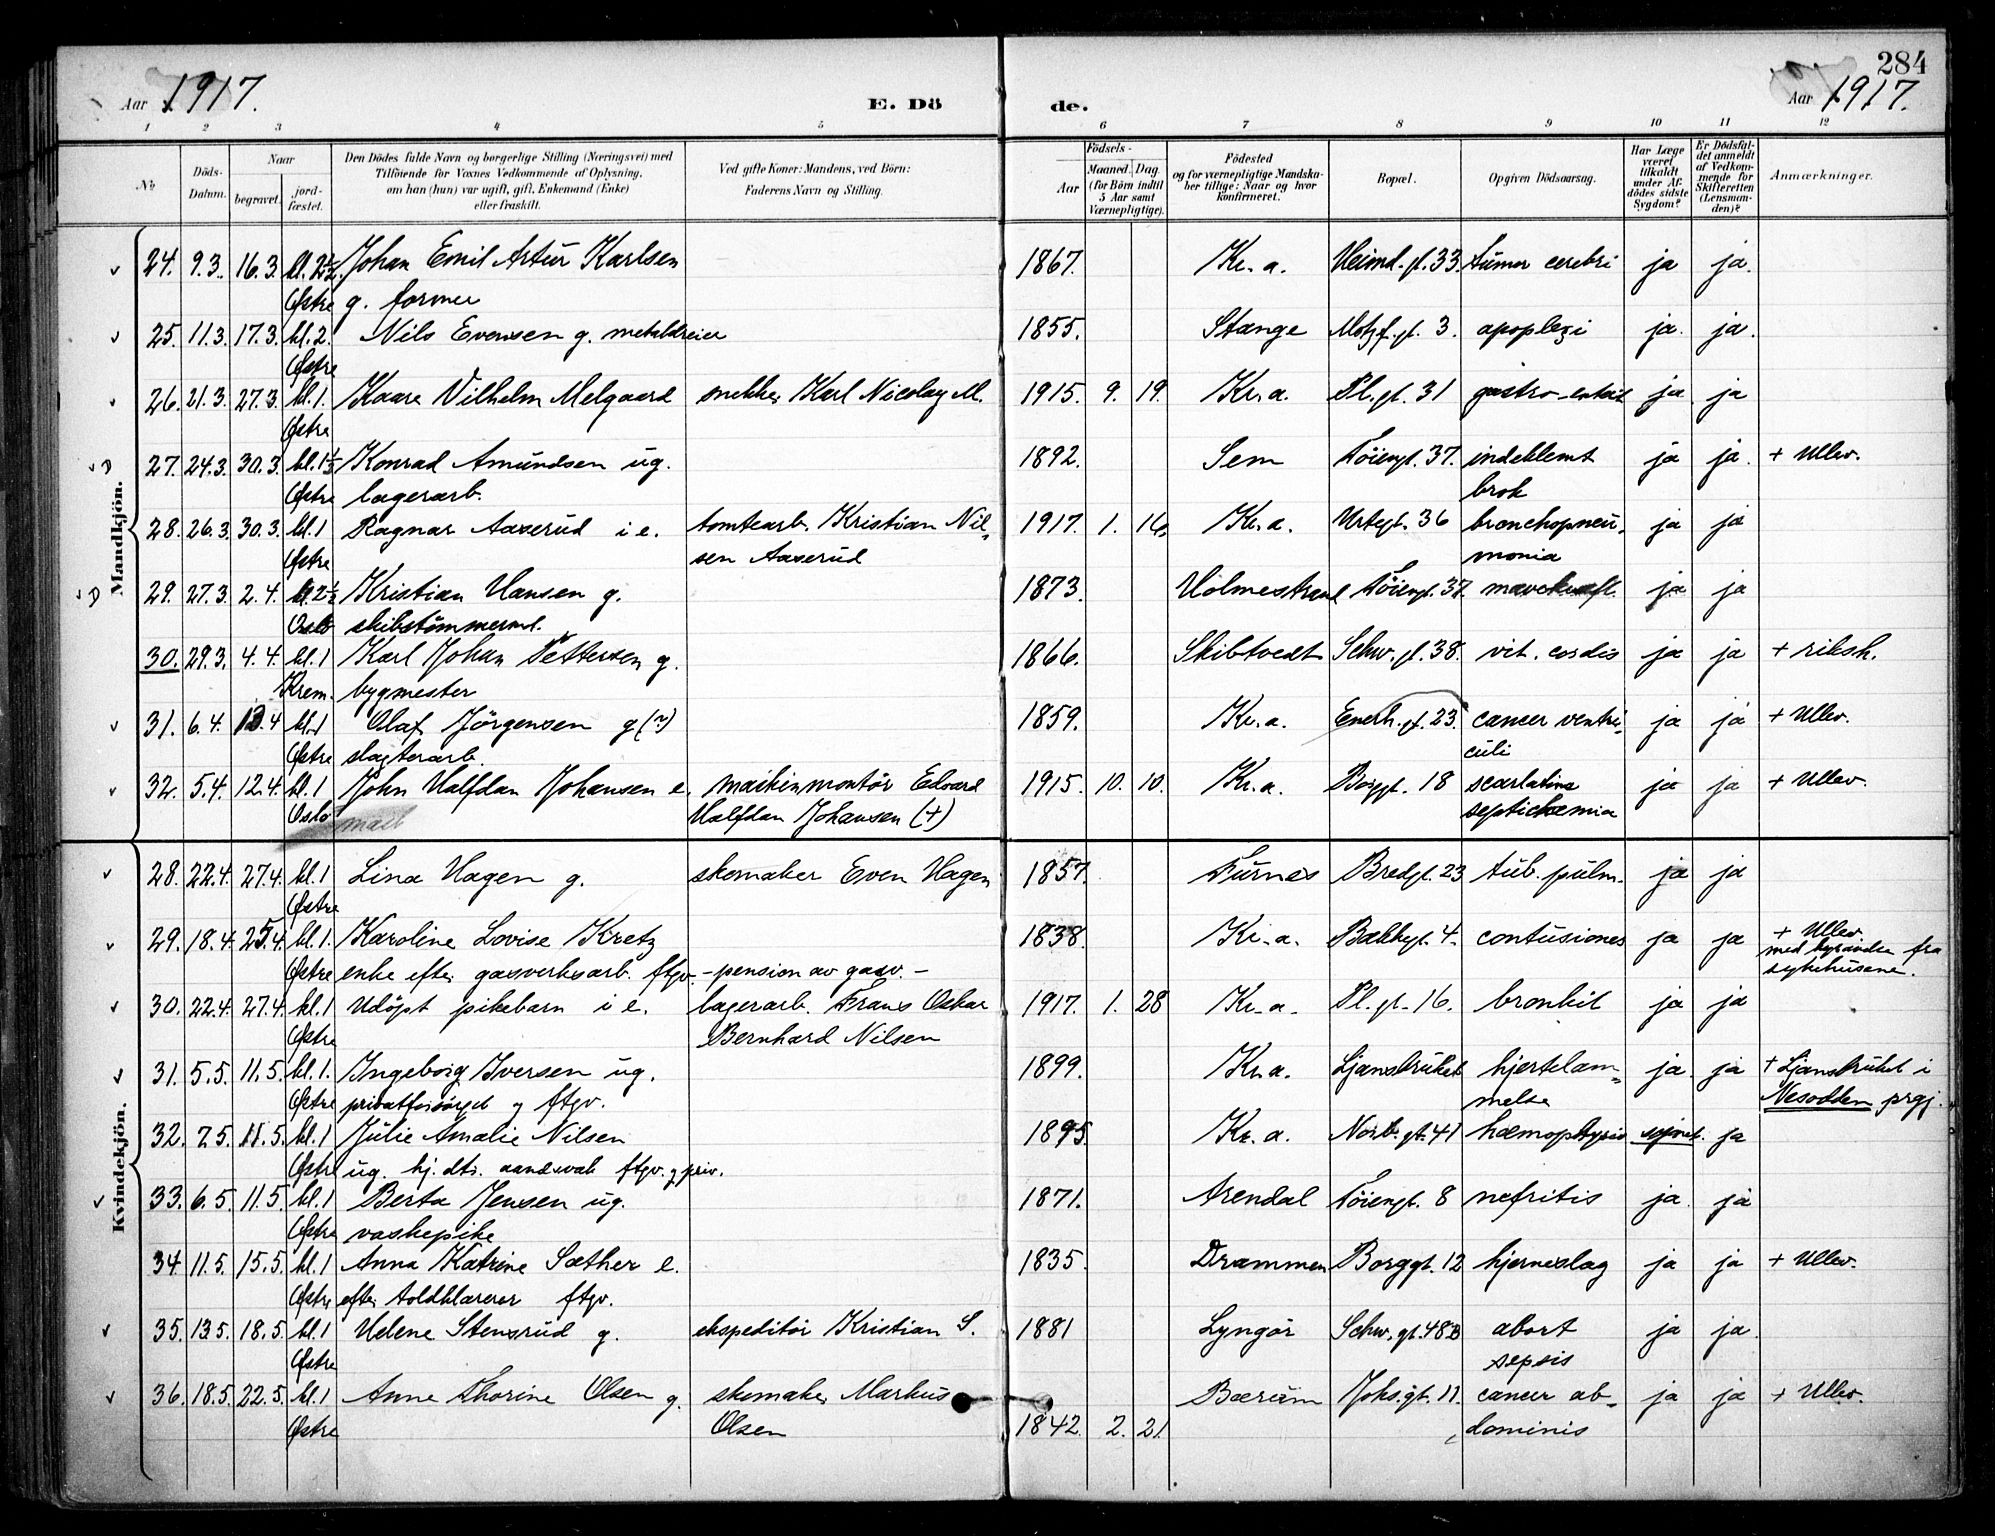 284
Aar 1917. E. Dö de. Aar 1917.
1 2 3 4 5 6 7 8 9 10 11 12
No
Döds-Datum.
Naar
begravet.
jord-fæstet.
Den Dödes fulde Navn og borgerlige Stilling (Næringsvei) med
Tilföiende for Voxnes Vedkommende af Oplysning,
om han (hun) var ugift, gift, Enkemand (Enke)
eller fraskilt.
Ved gifte Koner: Mandens, ved Börn:
Faderens Navn og Stilling.
Födsels-
Aar
Maaned. Dag.
(for Börn indtil
5 Aar samt
Værnepligtige).
Födested
og for værnepligtige Mandska-
ber tillige: Naar og hvor
konfirmeret.
Bopæl.
Opgiven Dödsaarsag.
Har Læge
været
tilkaldt
under Af-
dödes sidste
Sygdom?
Er Dödsfal-
det anmeldt
af Vedkom-
mende for
Skifteretten
(Lensman-
den)?
Anmærkninger.
Mandkjön.
24. 9.3. 16.3. kl. 2½. Johan Emil Artur Karlsen 1867. Kr.a. Heimd.gt. 33. tumor cerebri ja ja.
Østre g. former
25. 11.3. 17.3. kl. 2. Nils Evensen g. metaldreier 1855. Stange Motzf.gt. 3. apoplexi ja. ja.
Østre
26. 21.3. 27.3. kl. 1. Kaare Vilhelm Melgaard snekker Karl Nicolay M. 1915. 9. 19. Kr.a. Pl.gt. 31 gastro-enterit ja ja
Østre
27. 24.3. 30.3. kl. 1½ Konrad Amundsen ug. 1892. Sem Töiengt. 37. indeklemt ja ja. + Ullev.
Østre lagerarb. brok
28. 26.3. 30.3. kl. 1 Ragnar Aaserud i e. tomtearb. Kristian Nil- 1917. 1. 16. Kr.a. Urtegt. 36 bronchopneu- ja ja
Østre sen Aaserud monia
29. 27.3. 2.4. kl. 2½ Kristian Hansen g. 1873. Holmestrand Töiengt. 37. mavekræft. ja ja
Oslo skibstömmerm.
30. 29.3. 4.4. kl. 1 Karl Johan Pettersen g. 1866. Skibtvedt Schw.gt. 38. vit. cordis ja ja + riksh.
Krem. bygmester
31. 6.4. 4 kl. 1 Olaf Jörgensen g (~) 1859. Kr.a. Enerh.gt. 23. cancer ventri- ja ja + Ullev.
Østre slagterarb. culi
32. 5.4. 12.4. kl. 1 John Halfdan Johansen e. maskinmontör Edvard 1915. 10. 10. Kr.a. Borggt. 18 scarlatina ja ja + Ullev.
Oslo Halfdan Johansen (+) septichæmia
Kvindekjön.
28. 22.4. 27.4. kl. 1 Lina Hagen g. skomaker Even Hagen 1857. Furnes Bredgt. 23 tub. pulm. ja ja
Østre
29. 18.4. 25.4. kl. 1. Karoline Lovise Kretz 1838. Kr.a. Bakkegt. 4. contusiones ja ja + Ullev.
Østre enke efter gasverksarb. ftgv. - pension av gasv. - med byraaden fra
sykehusene.
30. 22.4. 27.4. kl. 1 Udöpt pikebarn i e. lagerarb. Frans Oskar 1917. 1. 28 Kr.a. Pl.gt. 16. bronkit ja ja
Østre Bernhard Nilsen
31. 5.5. 11.5. kl. 1. Ingeborg Iversen ug. 1899. Kr.a. Ljansbruket hjertelam- ja. ja + Ljansbruket i
Østre privatforsörget og ftgv. melse Nesodden prgj.
32. 7.5. 11.5. kl. 1 Julie Amalie Nilsen 1895 Kr.a. Norb.gt. 41 hæmoptysis ja
Østre ug. hj. dtr. aandsvak ftgv. g priv.
33. 6.5. 11.5. kl. 1 Berta Jensen ug. 1871. Arendal Töiengt. 8 nefritis ja. ja
Østre vaskepike
34 11.5. 15.5. kl. 1 Anna Katrine Sæther e. 1835. Drammen Borggt. 12 hjerneslag ja ja + Ullev.
Østre efter toldklarerer ftgv.
35. 13.5. 18.5. kl. 1 Helene Stensrud g. ekspeditör Kristian S. 1881 Lyngör Schw.gt. 48B abort ja ja.
Østre sepsis
36. 18.5. 22.5. kl. 1 Anne Thorine Olsen g. skomaker Markus Bærum Johs.gt. 11. cancer ab- ja ja + Ullev.
Østre Olsen 1842. 2. 21. dominis